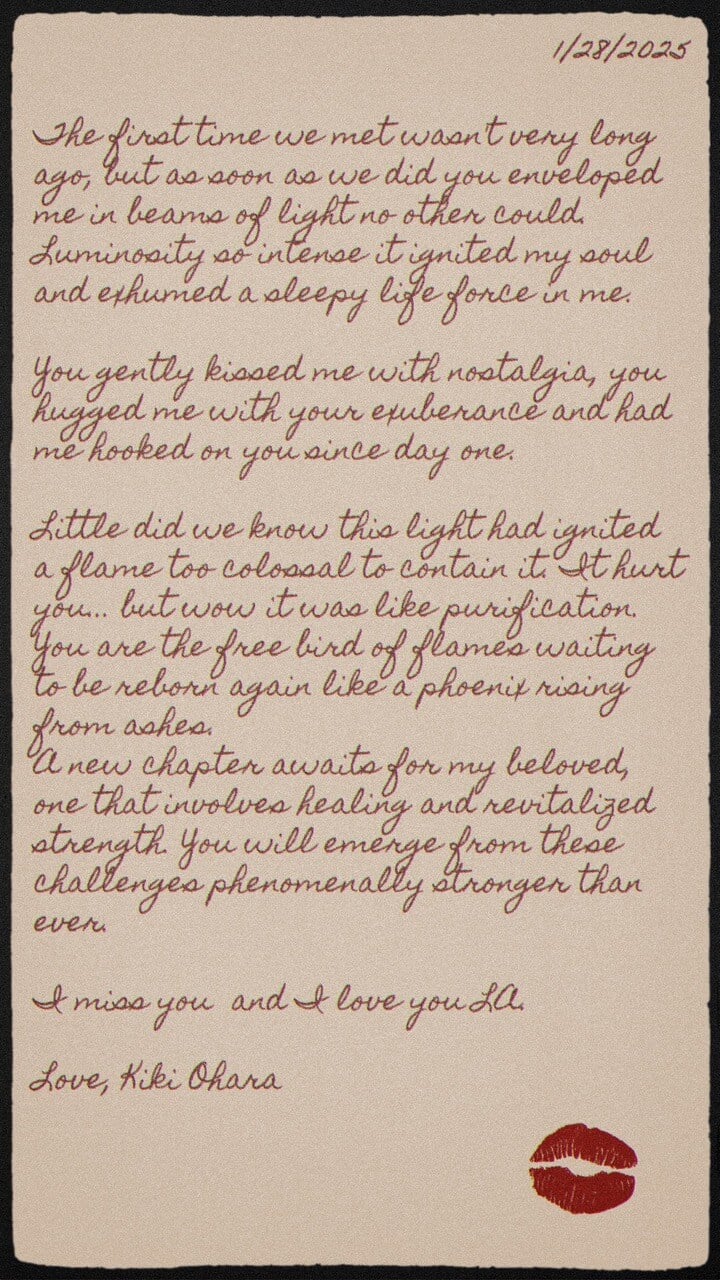 1/28/2025
The first time we met wasn't very long
ago, but as soon as we did you enveloped
me in beams of light no other could.
Luminosity so intense it ignited my soul
and exhumed a sleepy life force in me.
You gently kissed me with nostalgia, you
hugged me with your exuberance and had
me hooked on you since day one.
Little did we know this light had ignited
a flame too colossal to contain it. It hurt
you... but wow it was like purification.
You are the free bird of flames waiting
to be reborn again like a phoenix rising
from ashes.
A new chapter awaits for my beloved,
one that involves healing and revitalized
strength. You will emerge from these
challenges phenomenally stronger than
ever.
I miss you and I love you LA.
Love, Kiki Ohara